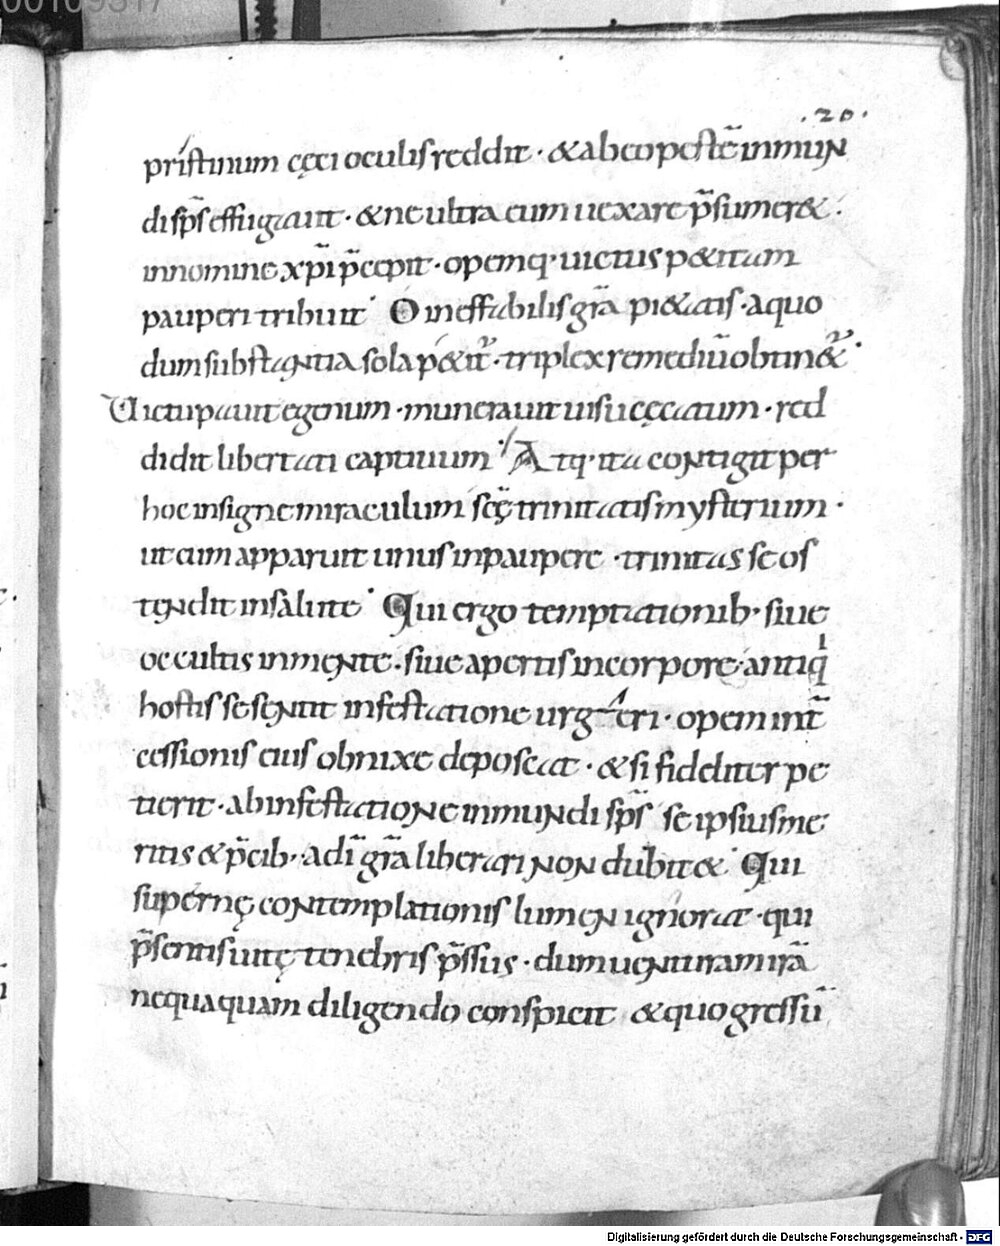 00109317
.20.
pristinum cęci oculis reddit · & ab eo pestē inmun
di sp̄s effugauit · & ne ultra eum uexare p̄sumer& :
in nomine xp̄i p̄cepit · opemq· uictus p&itam
pauperi tribuit · O ineffabilis gr̄a pi&atis · a quo
dum substantia sola p&it᷑ · triplex remediū obtin&᷑ ·
Victu pauit egenum · munerauit uisu cęcatum · red
didit libertati captiuum · Atq· ita contigit per
hoc insigne miraculum sc̄ę trinitatis mysterium ·
ut cum apparuit unus in paupere · trinitas se os
tendit in salute · Qui ergo temptationib· siue
occultis in mente · siue apertis in corpore antiq
hostis se sentit infestatione urgeri · opem int̄
cessionis eius obnixe deposcat · & si fideliter pe
tierit · ab infestatione inmundi sp̄s se ipsius me
ritis & p̄cib· a dī gr̄a liberari non dubit& · Qui
supernę contemplationis lumen ignorat · qui
p̄sentis uitę tenebris p̄ssus · dum uentura mirā
nequaquam diligendo conspicit & quo gressū
Digitalisierung gefördert durch die Deutsche Forschungsgemeinschaft - DFG